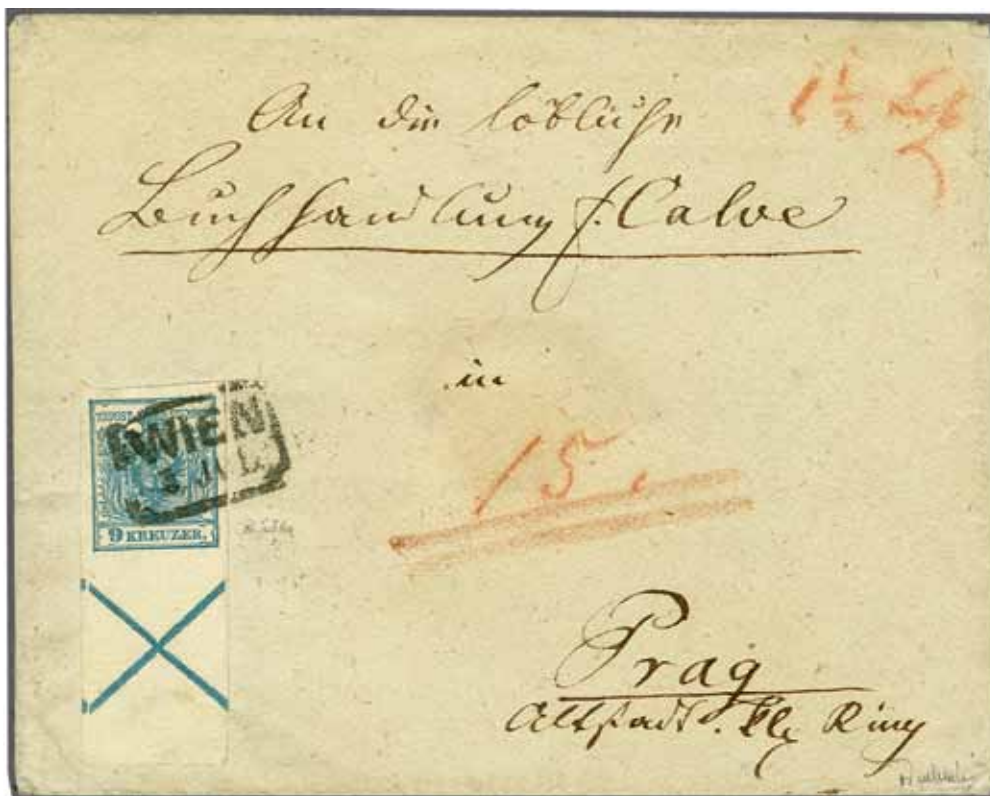 An die löbliche
Buchhandlung J. Calve
in
15
WIEN
5. JUL.
9 KREUZER.
Prag
Altstadt. kl. Ring
1 1/2 Lth